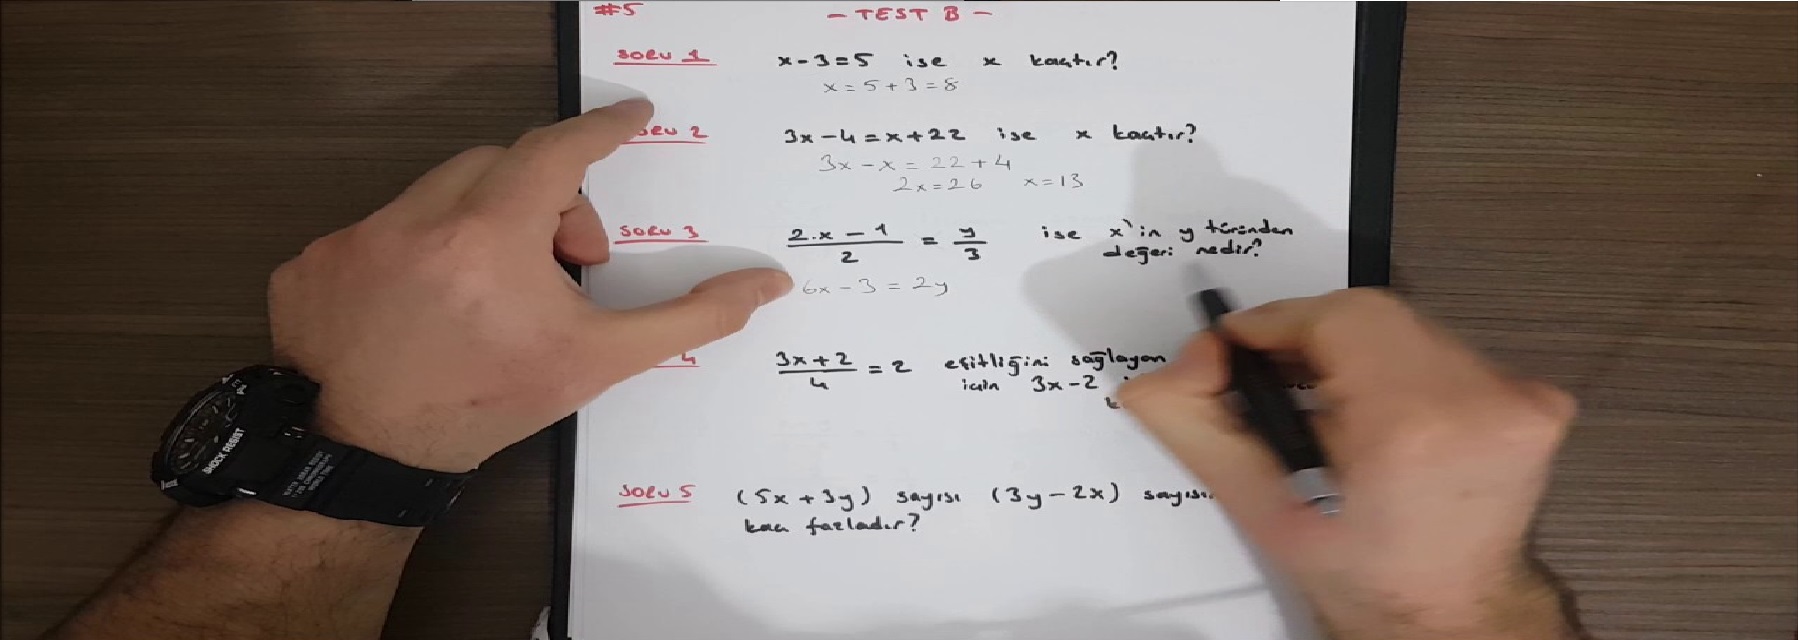 #5
- TEST B -
SORU 1 x-3=5 ise x kaçtır?
x=5+3=8
SORU 2 3x-4=x+22 ise x kaçtır?
3x-x=22+4
2x=26 x=13
SORU 3 (2.x-1)/2 = y/3 ise x'in y türünden
değeri nedir?
6x-3=2y
4 (3x+2)/4 = 2 eşitliğini sağlayan
için 3x-2
SORU 5 (5x+3y) sayısı (3y-2x)
kaç fazladır?
SHOCK RESIST